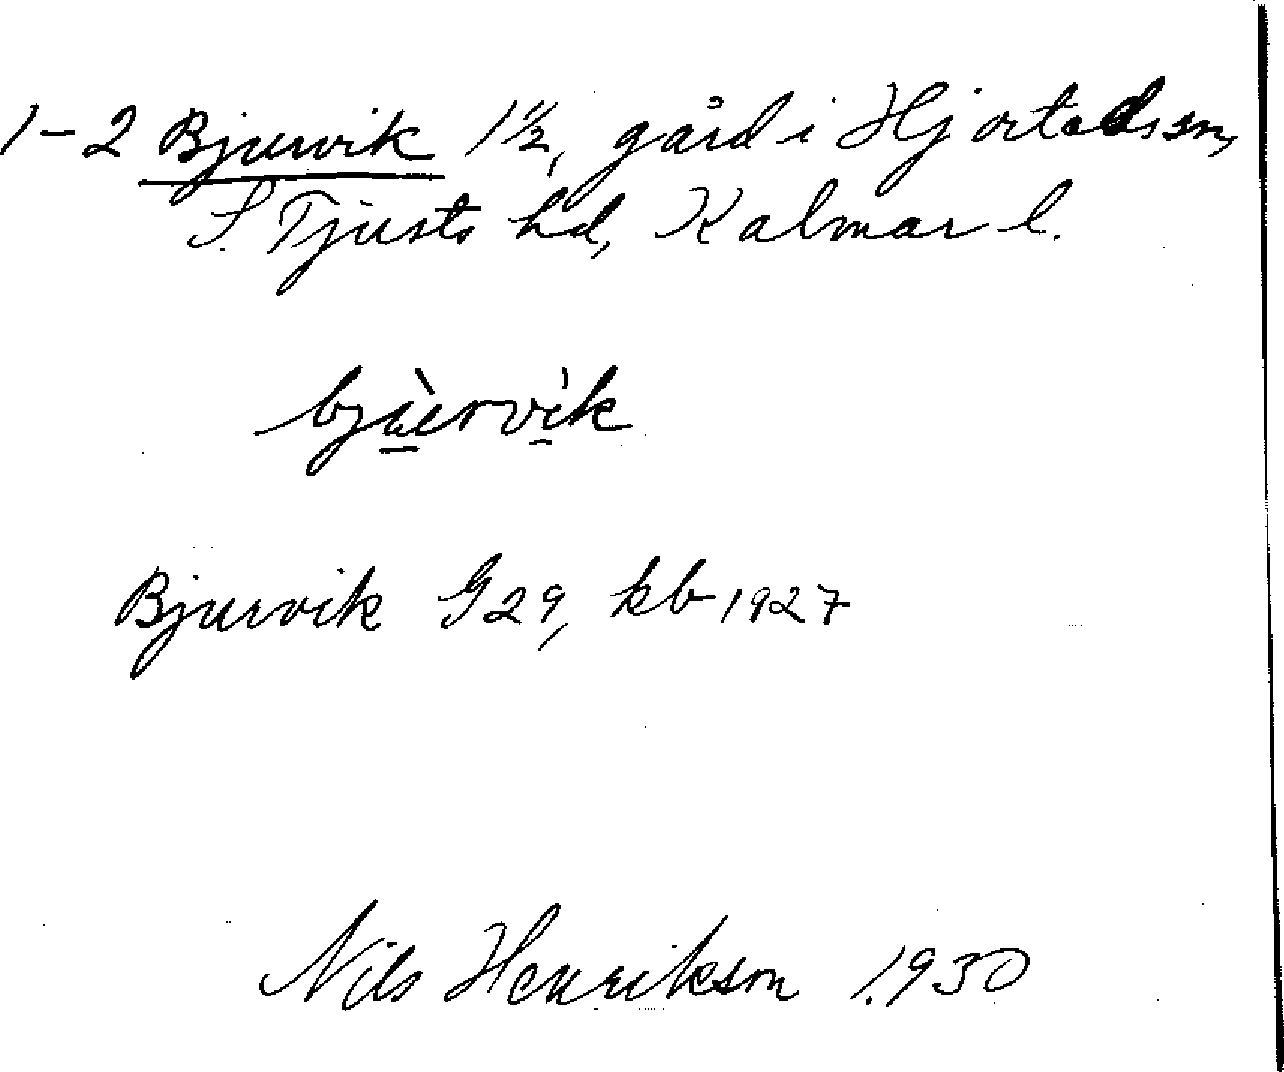 1-2 Bjurvik 1 1/2, gård i Hjorteds sn,
S. Tjusts hd, Kalmar l.
bjùervìk
Bjurvik G29, kb 1927
Nils Henrikson 1930